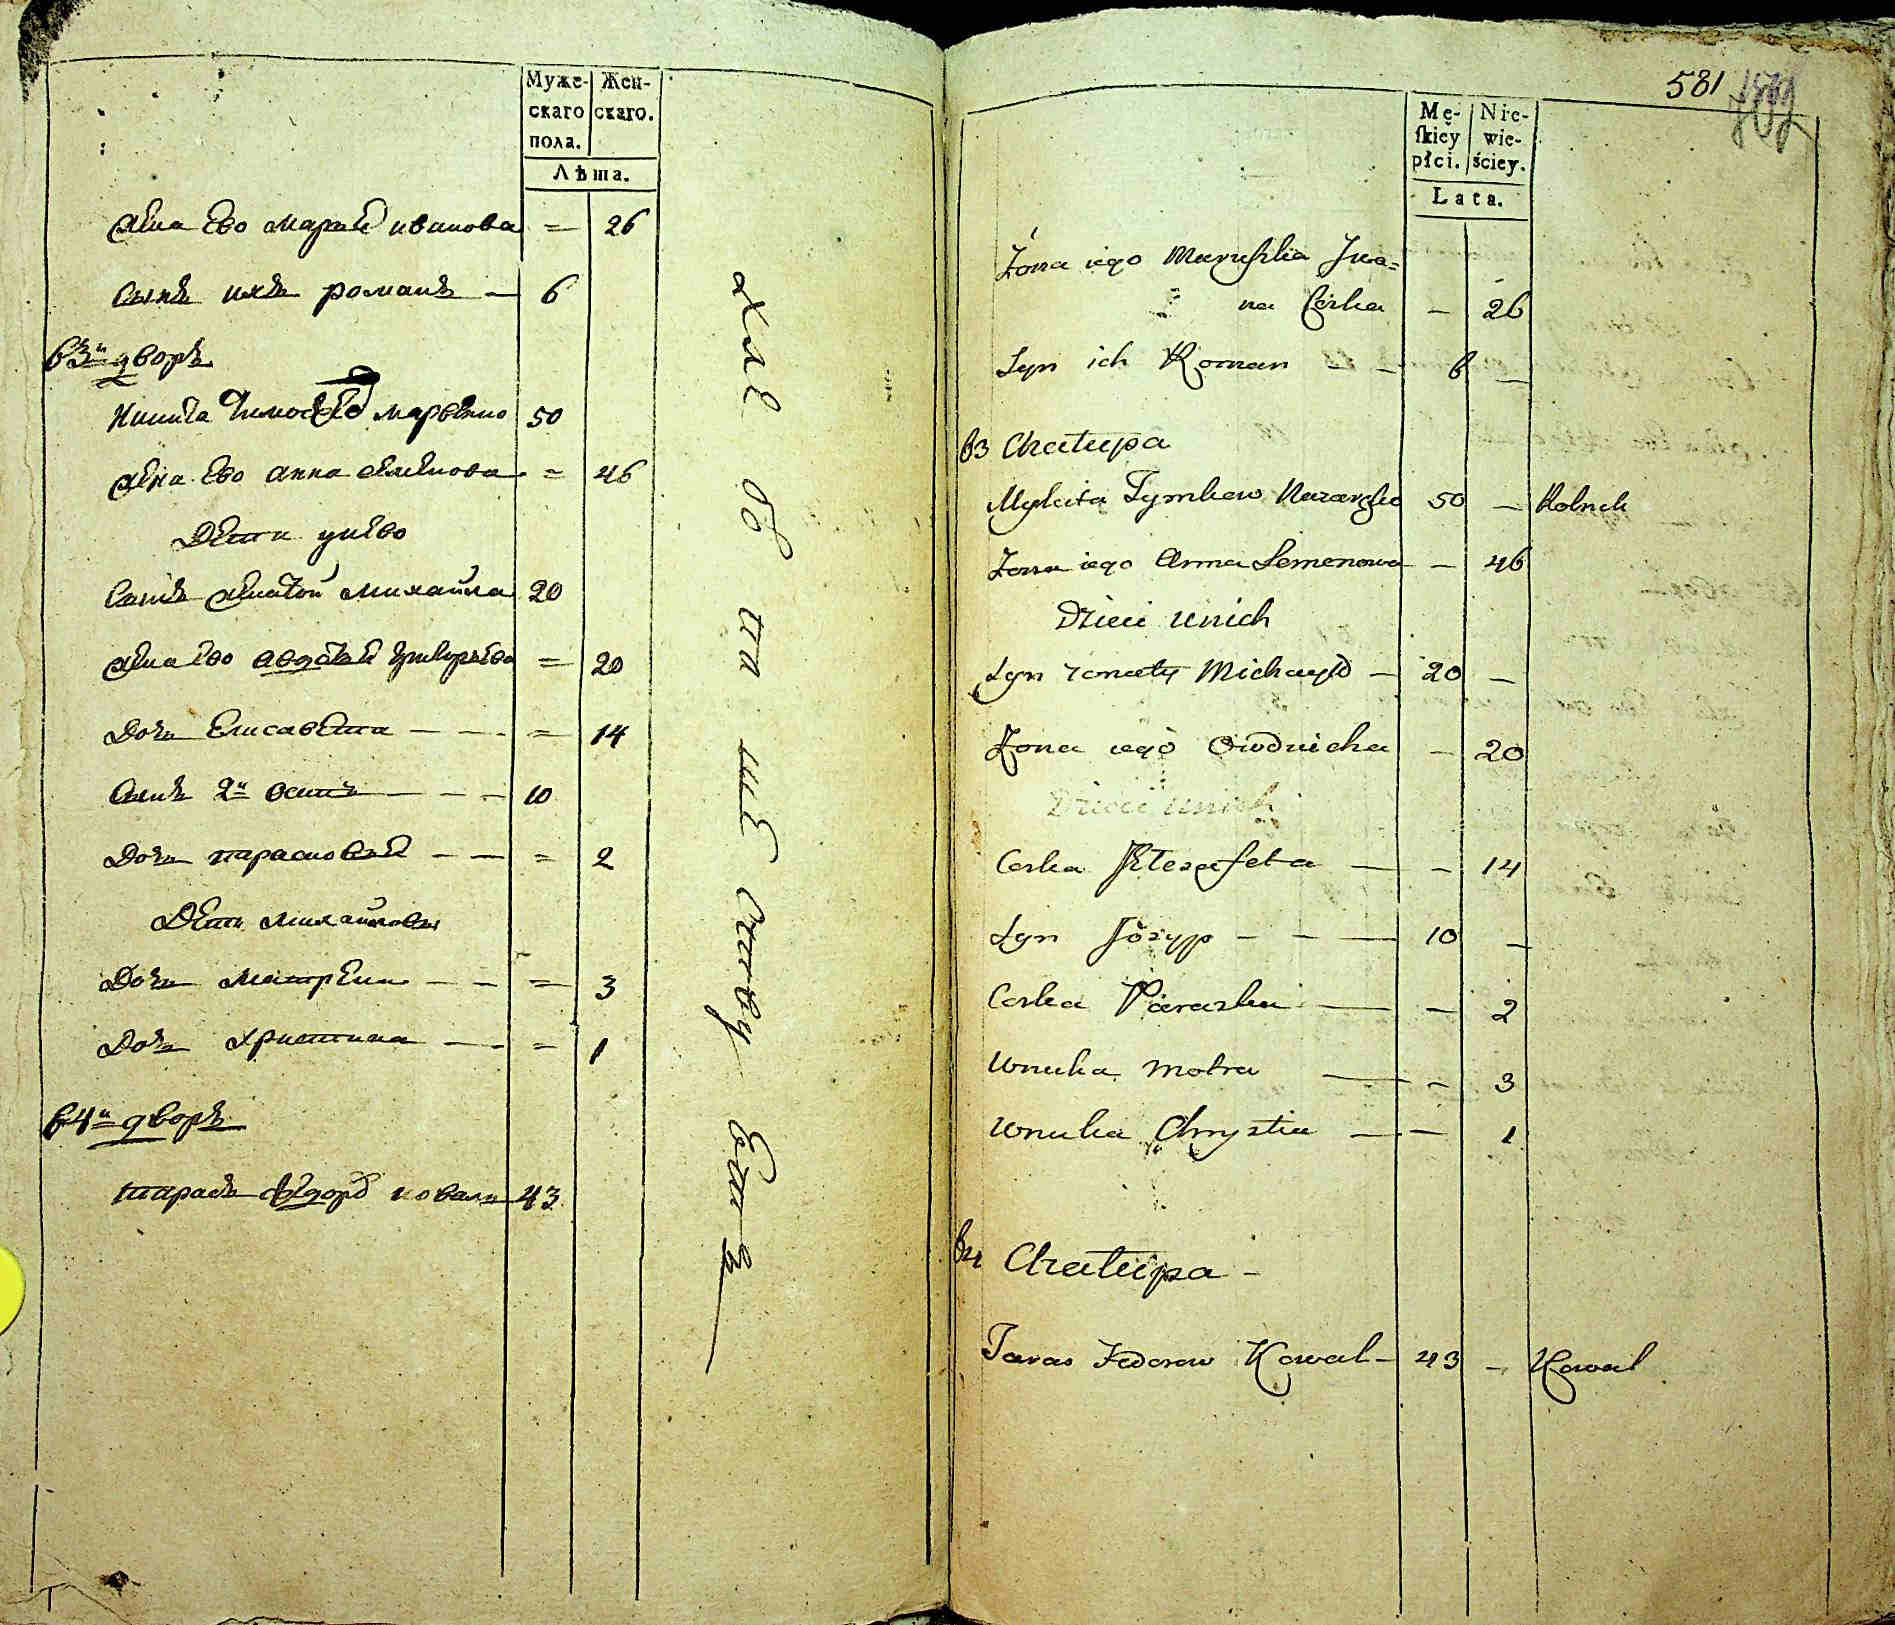 Муже-
скаго
пола.
Жен-
скаго.
Лѣта.
жена Ево Марѣя иванова = 26
Сынъ ихъ романъ — 6
в 3м дворѣ
Никита Тимофѣев 50
жена Ево анна семенова = 46
Дѣти униво
Сынъ женатой михайла 20
жена Ево Авдотья григорьева = 20
Дочь Елисавета — — = 14
Сынъ 2й осипъ — — — 10
Дочь парасковья — — = 2
Дѣти михайловы
Дочь матрена — — = 3
Дочь христина — — = 1
в 4м дворѣ
тарасъ федоров коваль 43
581
Mę-
ſkiey
płci.
Nie-
wie-
ściey.
Lata.
Żona iego Maruszka Jwa=
na Córka — 26
Syn ich Roman — — 6 —
63 Chałupa
Mykita Tymkow 50 — Rolnik
Żona iego Anna Semenowa — 46
Dzieci unich
Syn żonaty Michayło — 20 —
Żona iego Owdoicha — 20
Dzieci unich
Corka Jelezafeta — — 14
Syn Józyp — — — 10 —
Corka Paraska — — 2
Wnuka Motra — — 3
Wnuka Chrystia — — 1
64 Chałupa —
Taras Fedorow Kowal — 43 — Kowal